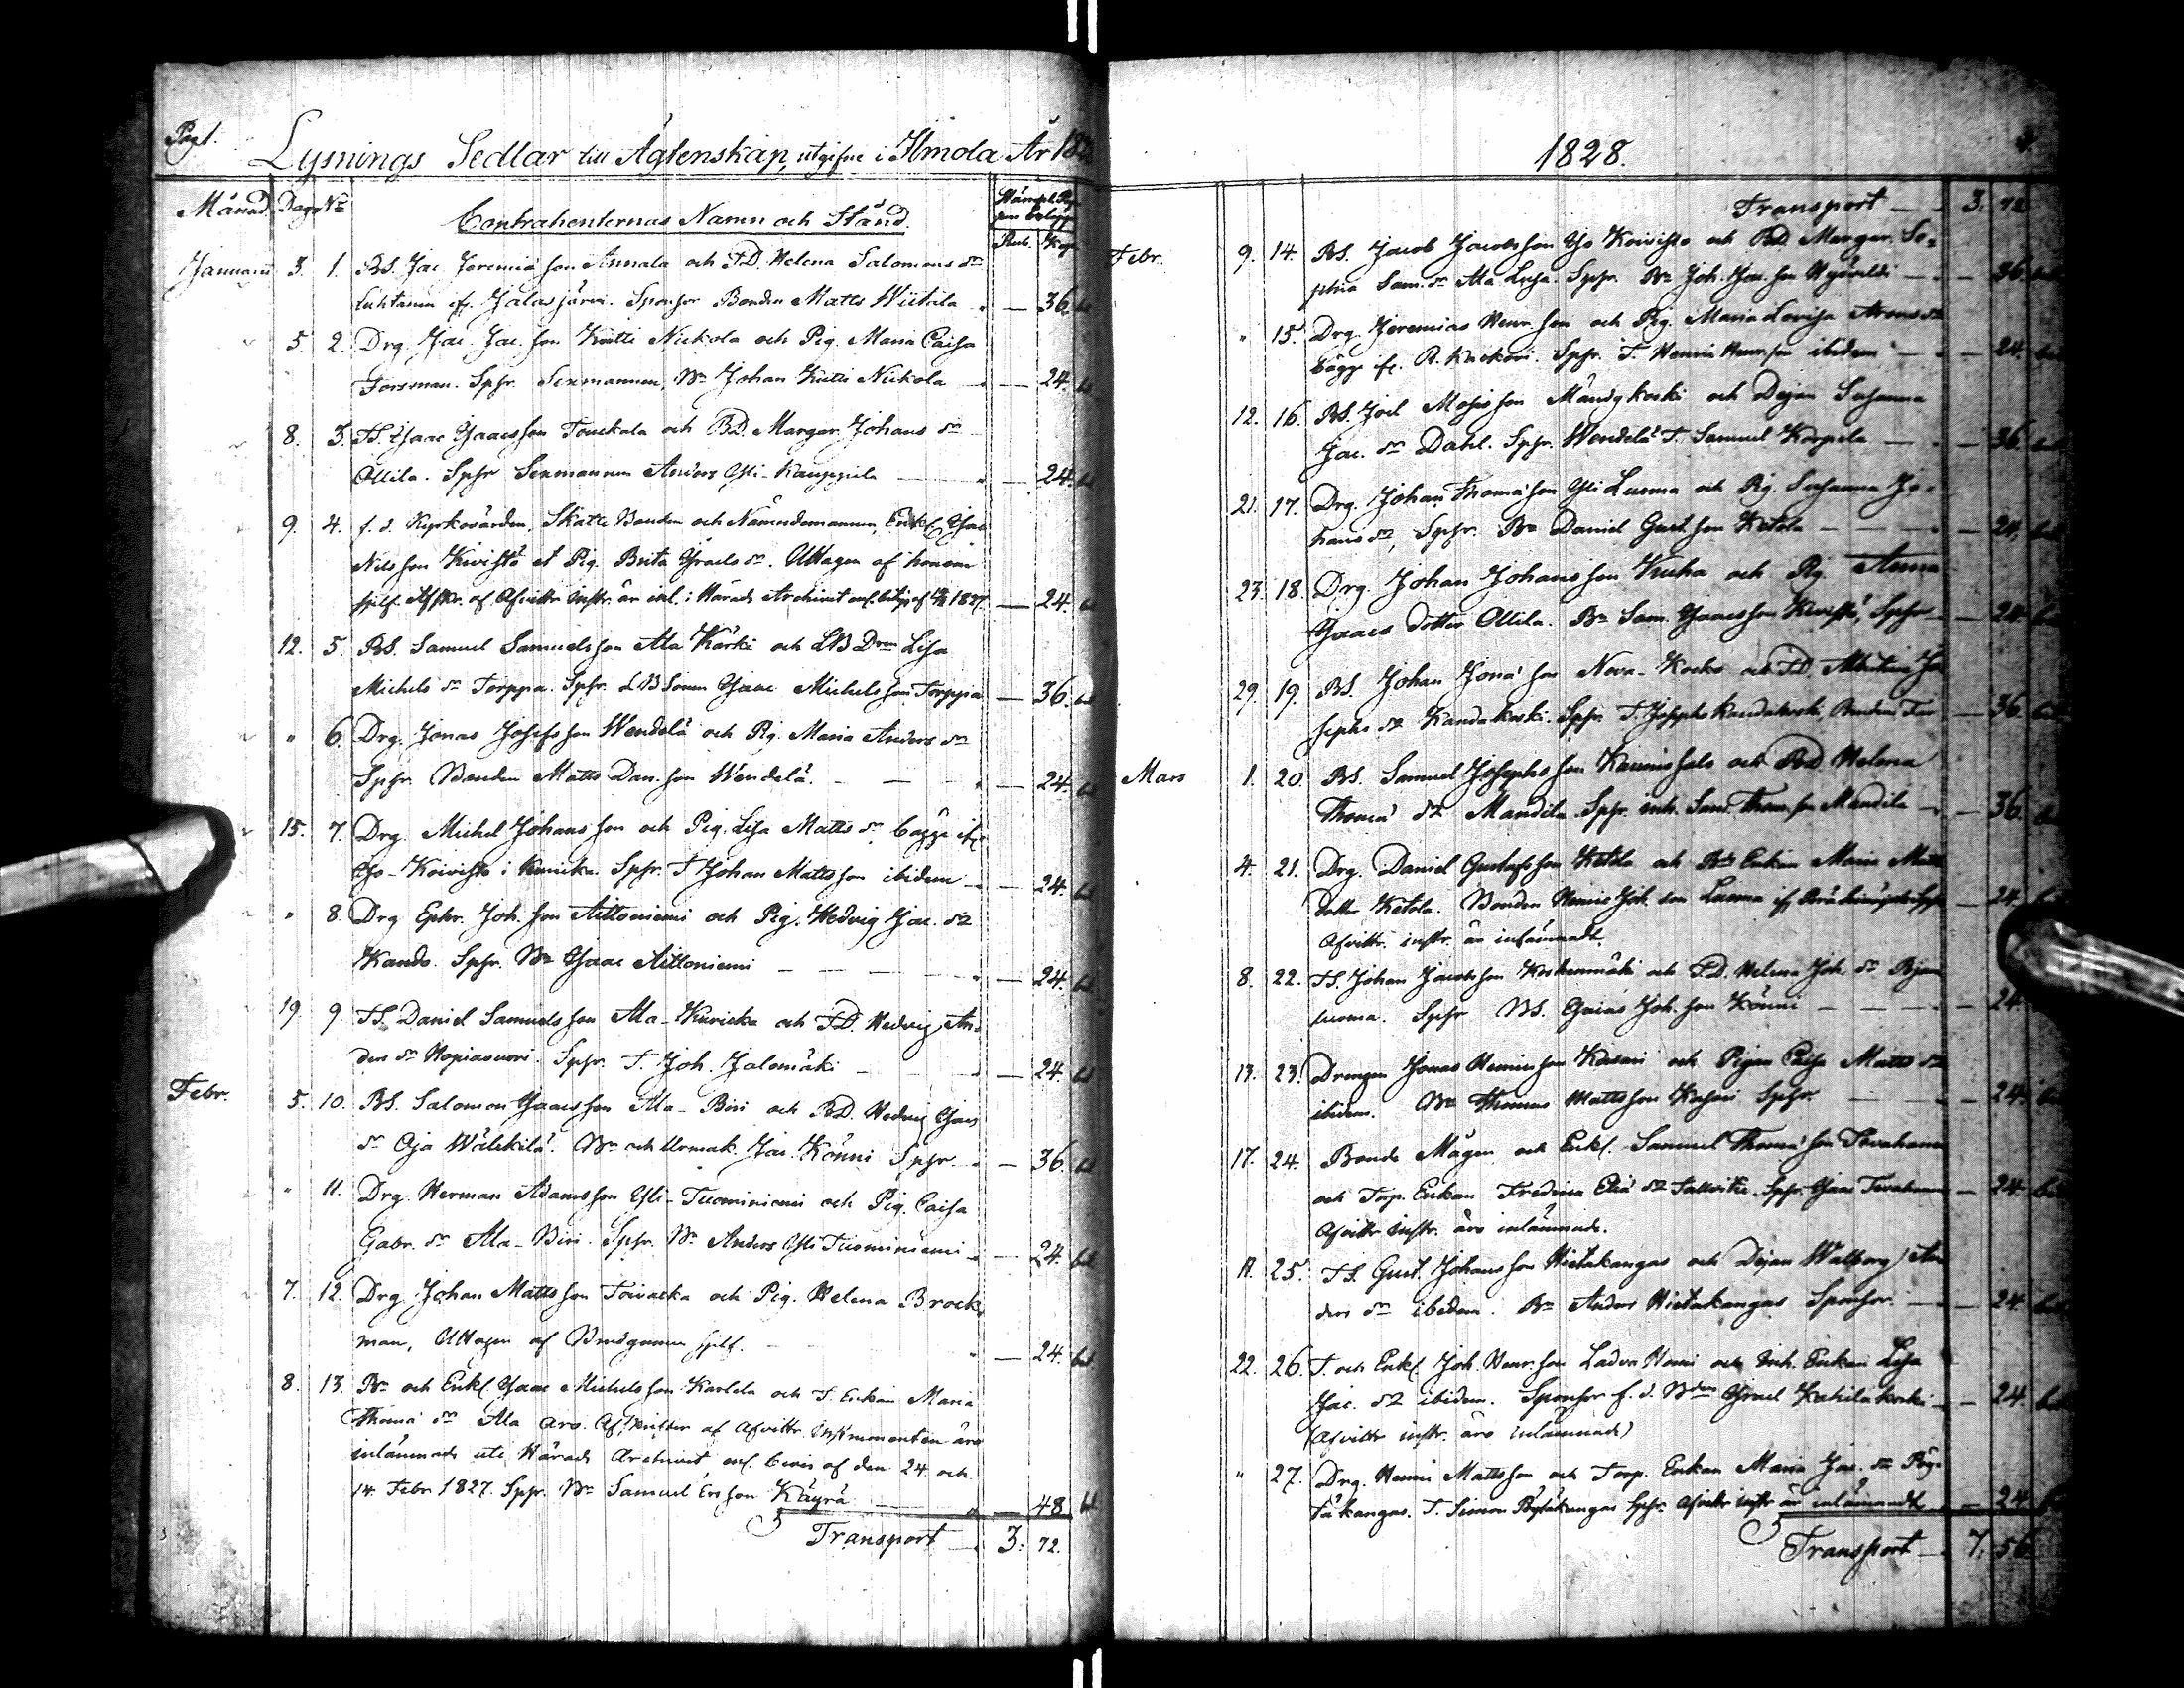 Pag 1.
Lysnings Sedlar till Ägtenskap, utgifne i Ilmola År 182
Månad Dag No Contrahenternas Namn och Stånd.
Rub. Kop.
Januarii 3. 1. BS. Jac. Jeremiæ son Annala och TD. Helena Salomons dr
Luhtanen if. Jalasjärvi. Sponsor Bonden Matts Wiitala — 36.
5. 2. Drg. Jac. Jac. son Knitti Nickola och Pig. Maria Caisa
Forsman. Spsr. Sexmannen, Bn Johan Knitti Nickola — 24.
8. 3. TS. Isaac Isaacs son Touckola och BD. Margar. Johans dr
Ollila. Spsr Sexmannen Anders Yli-Kauppila — 24.
9. 4. f. d. Kyrkovärden, Skatte Bonden och Nämndemannen, Enkl. Isac
Nils son Kivistö et Pig. Brita Israels dr. Uttagen af honom
sjelf. af Afvittr. Instr. är inl. i Härads Archivet enl. 1827. — 24.
12. 5. BS. Samuel Samuels son Ala Kärki och LB Dren Lisa
Michels dr Torppa. Spsr. LB Sonen Isaac Michels son Torppa — 36.
" 6. Drg. Jonas Josefs son Wendelä och Pig. Maria Anders dr
Spsr. Bonden Matts Dan. son Wendelä. — 24.
15. 7. Drg. Michel Johans son och Pig. Lisa Matts dr bägge ifr.
Yo-Koivisto i Kuricka. Spsr. T. Johan Matts son ibidem — 24.
" 8. Drg Ephr. Joh. son Aittoniemi och Pig. Hedvig Jac. dr
Kando. Spsr. Bn Isaac Aittoniemi — 24.
19. 9. TS. Daniel Samuels son Ala-Kuricka och TD. Hedvig An-
ders dr Hopiavuori. Spsr. T. Joh. Jalomäki — 24.
Febr. 5. 10. BS. Salomon Isaacs son Ala-Biri och BD. Hedvig Isacs
dr Oja Wälikilä. Bn och Urmak. Jac. Könni Spsr. — 36.
" 11. Drg. Herman Adams son Yli-Tuominiemi och Pig. Caisa
Gabr. dr Ala-Biri. Spsr. Bn Anders Yli Tuominiemi — 24.
7. 12. Drg. Johan Matts son Toivacka och Pig. Helena Brock-
man, Uttagen af Brudgummen sjelf. — 24.
8. 13. Bn och Enkl. Isaac Michels son Karlela och T. Enkan Maria
Thomæ dr Ala Aro. Afskrifter af Afvittr. Instrumenten äro
inlämnade uti Härads Archivet enl. bevis af den 24 och
14. Febr 1827. Spsr. Bn Samuel Ers son Käyrä — 48.
Transport — 3: 72.
1828.
Transport — 3: 72
Febr. 9. 14. BS. Jacob Jacobs son Yo Koivisto och BD. Margar. So-
phia Sam. dr Ala Luoja. Spsr. Bn Joh. Jac. son — 36
" 15. Drg. Jeremias Henr. son och Pig. Maria Lovisa Arons dr
bägge fr. Spsr. T. Henric Henr. son ibidem — 24.
12. 16. BS. Joel Moses son Mändykoski och Dejan Susanna
Jac. dr Dahl. Spsr. Wendelä T. Samuel Korpela — 36.
21. 17. Drg. Johan Thomæ son Yli Luoma och Pig. Susanna Jo-
hans dr, Spsr. Bn Daniel Gust. son Ketola — 24.
23. 18. Drg. Johan Johans son Kuha och Pig. Anna
Isaacs dotter Ollila. Bn Sam. Isaacs son Kivistö, Spsr — 24.
29. 19. BS. Johan Jonæ son Neva-Kocko och TD. Albertina Jo-
sephs dr Kandakoski. Spsr. T. Josephs — 36.
Mars 1. 20. BS. Samuel Josephs son och BD. Helena
Thomæ dr Mandila. Spsr. Inh. Sam. Thom. son Mandila — 36.
4. 21. Drg. Daniel Gustafs son Ketola och Bde Enkan Maria Matts
dotter Ketola. Bonden Henric Joh. son Luoma — 24.
Afvittr. instr. är inlämnadt.
8. 22. TS. Johan Jacobs son Koskenmäki och TD. Helena Joh. dr
luoma. Spsr BS. Esaias Joh. son Könni — 24.
13. 23. Drengen Jonas Henrics son Kasari och Pigan Caisa Matts dr
ibidem. Bn Thomas Matts son Kasari Spsr. — 24.
17. 24. Bonde Mågen och Enkl. Samuel Thomæ son
och Torp. Enkan Fredrica Eliæ dr Spsr. Isaac — 24.
Afvittr. Instr. äro inlämnade.
25. TS. Gust. Johans son Hietakangas och Dejan Walborg An-
ders dr ibidem. Bn Anders Hietakangas Sponsor. — 24.
22. 26. T. och Enkl. Joh. Henr. son Ladva Honi och Inh. Enkan Lisa
Jac. dr ibidem. Sponsor f. d. Bden Israel — 24.
(Afvittr. instr. äro inlämnade)
" 27. Drg. Henric Matts son och Torp. Enkan Maria Jac. dr Pöy-
täkangas. T. Simon Pöytäkangas Spsr. Afvittr. instr. är inlämnadt — 24
Transport — 7: 56